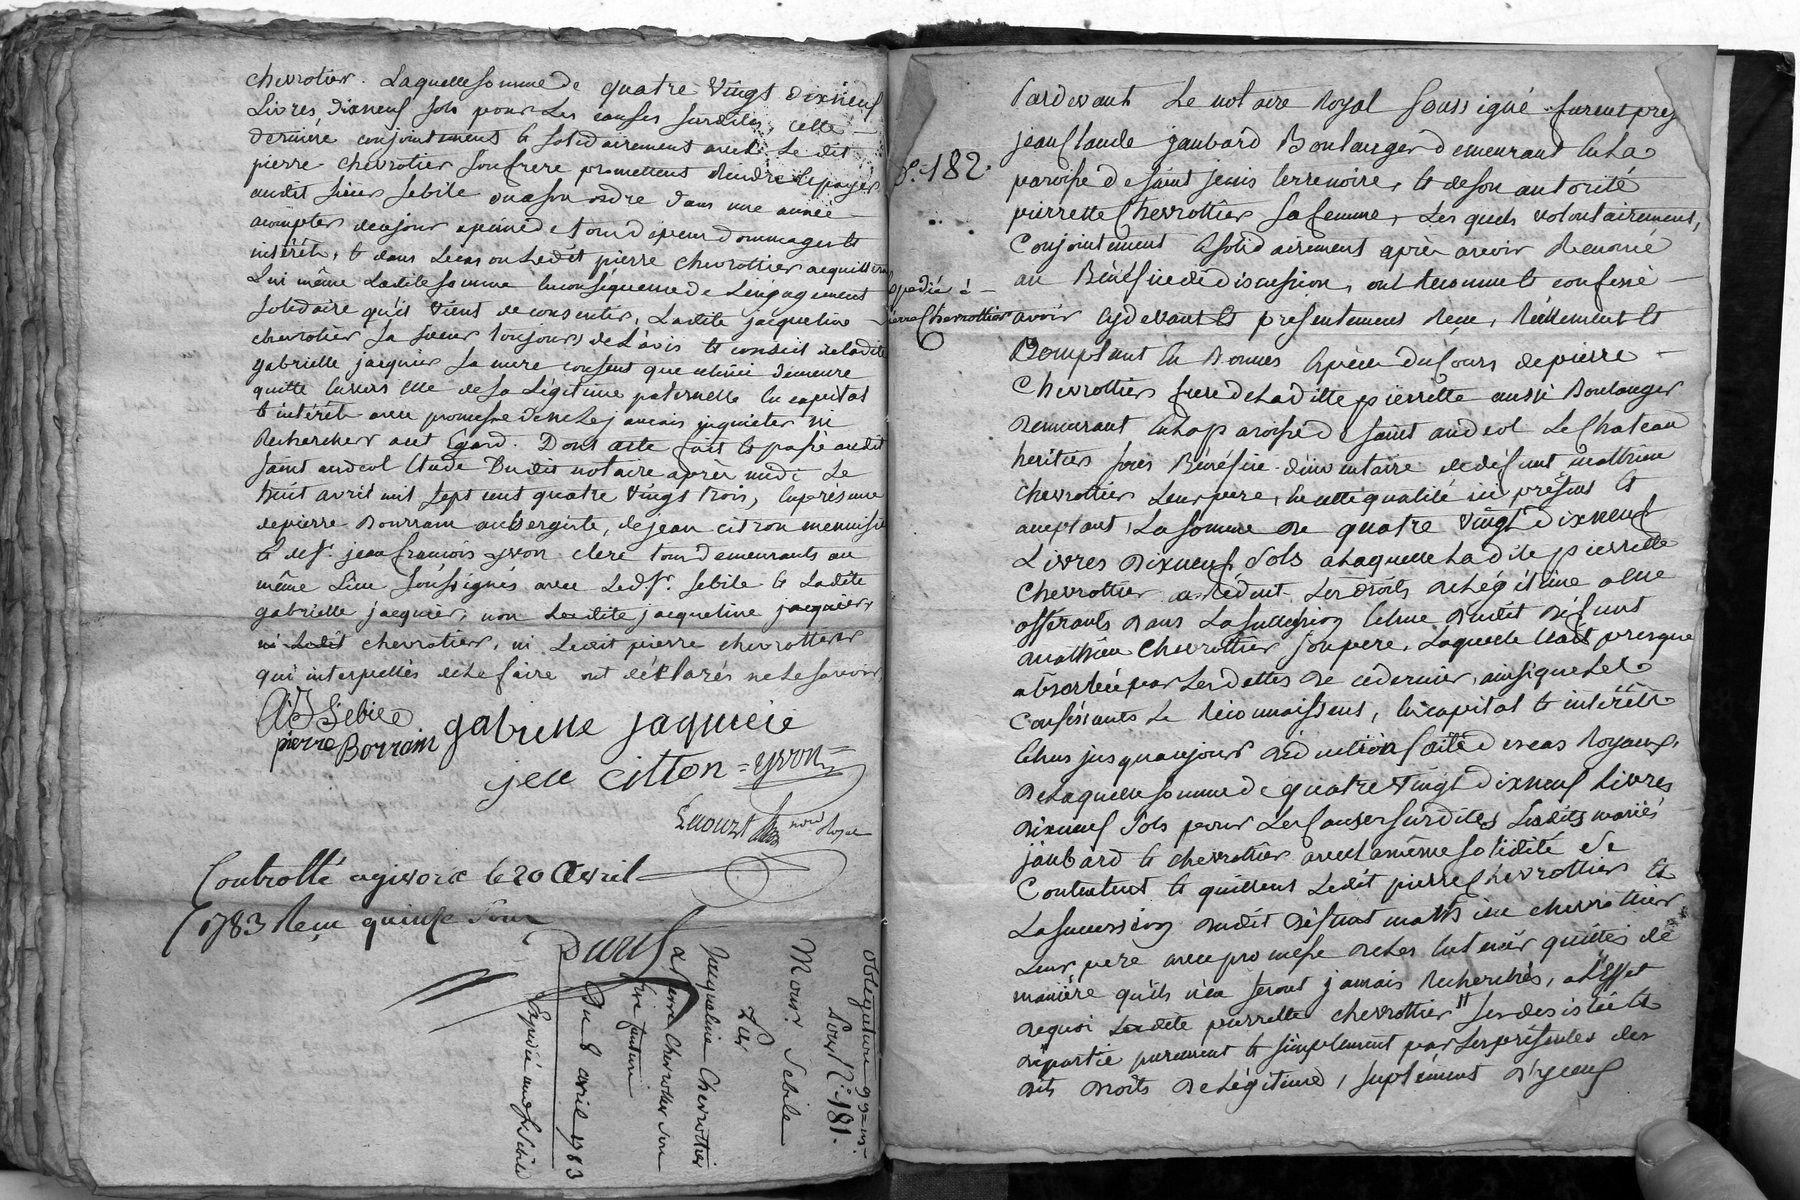 chevrotier. Laquelle somme de quatre vingt dixneuf
Livres dixneuf sols pour Les causes susdites, cette
derniere conjointement & solidairement avec Le dit
pierre chevrotier son frere promettent rendre & payer
audit sieur sebile ou a son ordre dans une année
a compter de ce jour a peine de tous depens dommages &
intérêts, & dans Le cas ou Ledit pierre chevrottier acquitteroit
Lui même Ladite somme en conséquence de L'engagement
solidaire qu'il vient de consentir, Ladite jacqueline
chevrotier sa soeur toujours de L'avis & conseil de Ladite
gabrielle jacquier sa mere consent que celui ci demeure
quitte envers elle de sa Légitime paternelle en capital
& intérêts avec promesse de ne Les jamais inquieter ni
Rechercher a cet Egard. Dont acte fait & passé audit
saint andeol Etude dudit notaire après midi Le
huit avril mil sept cent quatre vingt trois, en présence
de pierre Bourrain aubergiste, de jean citron menuisier
& de sr. jean francois yvon clerc tous demeurants au
même Lieu soussignés avec Led. sr. sebile & Ladite
gabrielle jacquier, non Ladite jacqueline jacquier
ni Ledit chevrotier, ni Ledit pierre chevrottier
qui interpellés de Le faire ont déclarés ne Le savoir
Sebile
pierre Borrain gabrielle jaquieie
jea citton = yvon =
nore Royal
Controllé a givors le 20 Avril
1783 Reçu quinse sous
obligation 99 =
Pour N.° 181.
Monsr. Sebile
Sur
Jacqueline Chevrottier
& pierre Chevrottier son
frere
Du 8 avril 1783
Expédié aud. Sr Sebile
N.° 182.
Expédié à
pierre Chevrottier
Pardevant Le notaire Royal soussigné furent prés.
jean Claude jaubard Boulanger demeurant en La
paroisse de saint jenis terrenoire, & de son autorité
pierrette Chevrottier sa femme, Lesquels volontairement,
conjointement & solidairement après avoir Renoncé
au Bénéfice de discussion, ont Reconnu & confessé
avoir cydevant & présentement Recu, Réellement &
comptant en Bonnes Espèces du Cours de pierre
Chevrottier frere de Laditte pierrette aussi Boulanger
demeurant en La paroisse de saint andeol Le Chateau
heritier sous Bénéfice d'inventaire de défunt mathieu
chevrottier Leur pere, en cette qualité ici présent &
acceptant, La somme de quatre vingt dixneuf
Livres dixneuf sols a Laquelle Ladite pierrette
Chevrottier a Réduit Les droits de Légitime a elle
afférants dans La succession celui dudit défunt
mathieu Chevrottier son pere, Laquelle était presque
absorbée par Les dettes de ce dernier, ainsi que Les
Confessants Le Reconnaissent, en capital & intérêts
Echus jusqu'aujourd Réduction faite des cas Royaux,
de Laquelle somme de quatre vingt dixneuf Livres
dixneuf sols pour Les Causes susdites Lesdits mariés
jaubard & chevrottier avec La même solidité se
Contentent & quittent Ledit pierre Chevrottier &
La succession dudit défunt mathieu chevrottier
Leur pere avec promesse de Les en tenir quittes de
manière qu'ils n'en seront jamais Recherchés, a L'effet
de quoi Ladite pierrette chevrottier s'est desistée &
départie purement & simplement par Les présentes des
dits droits de Légitime, suplément d'yceux